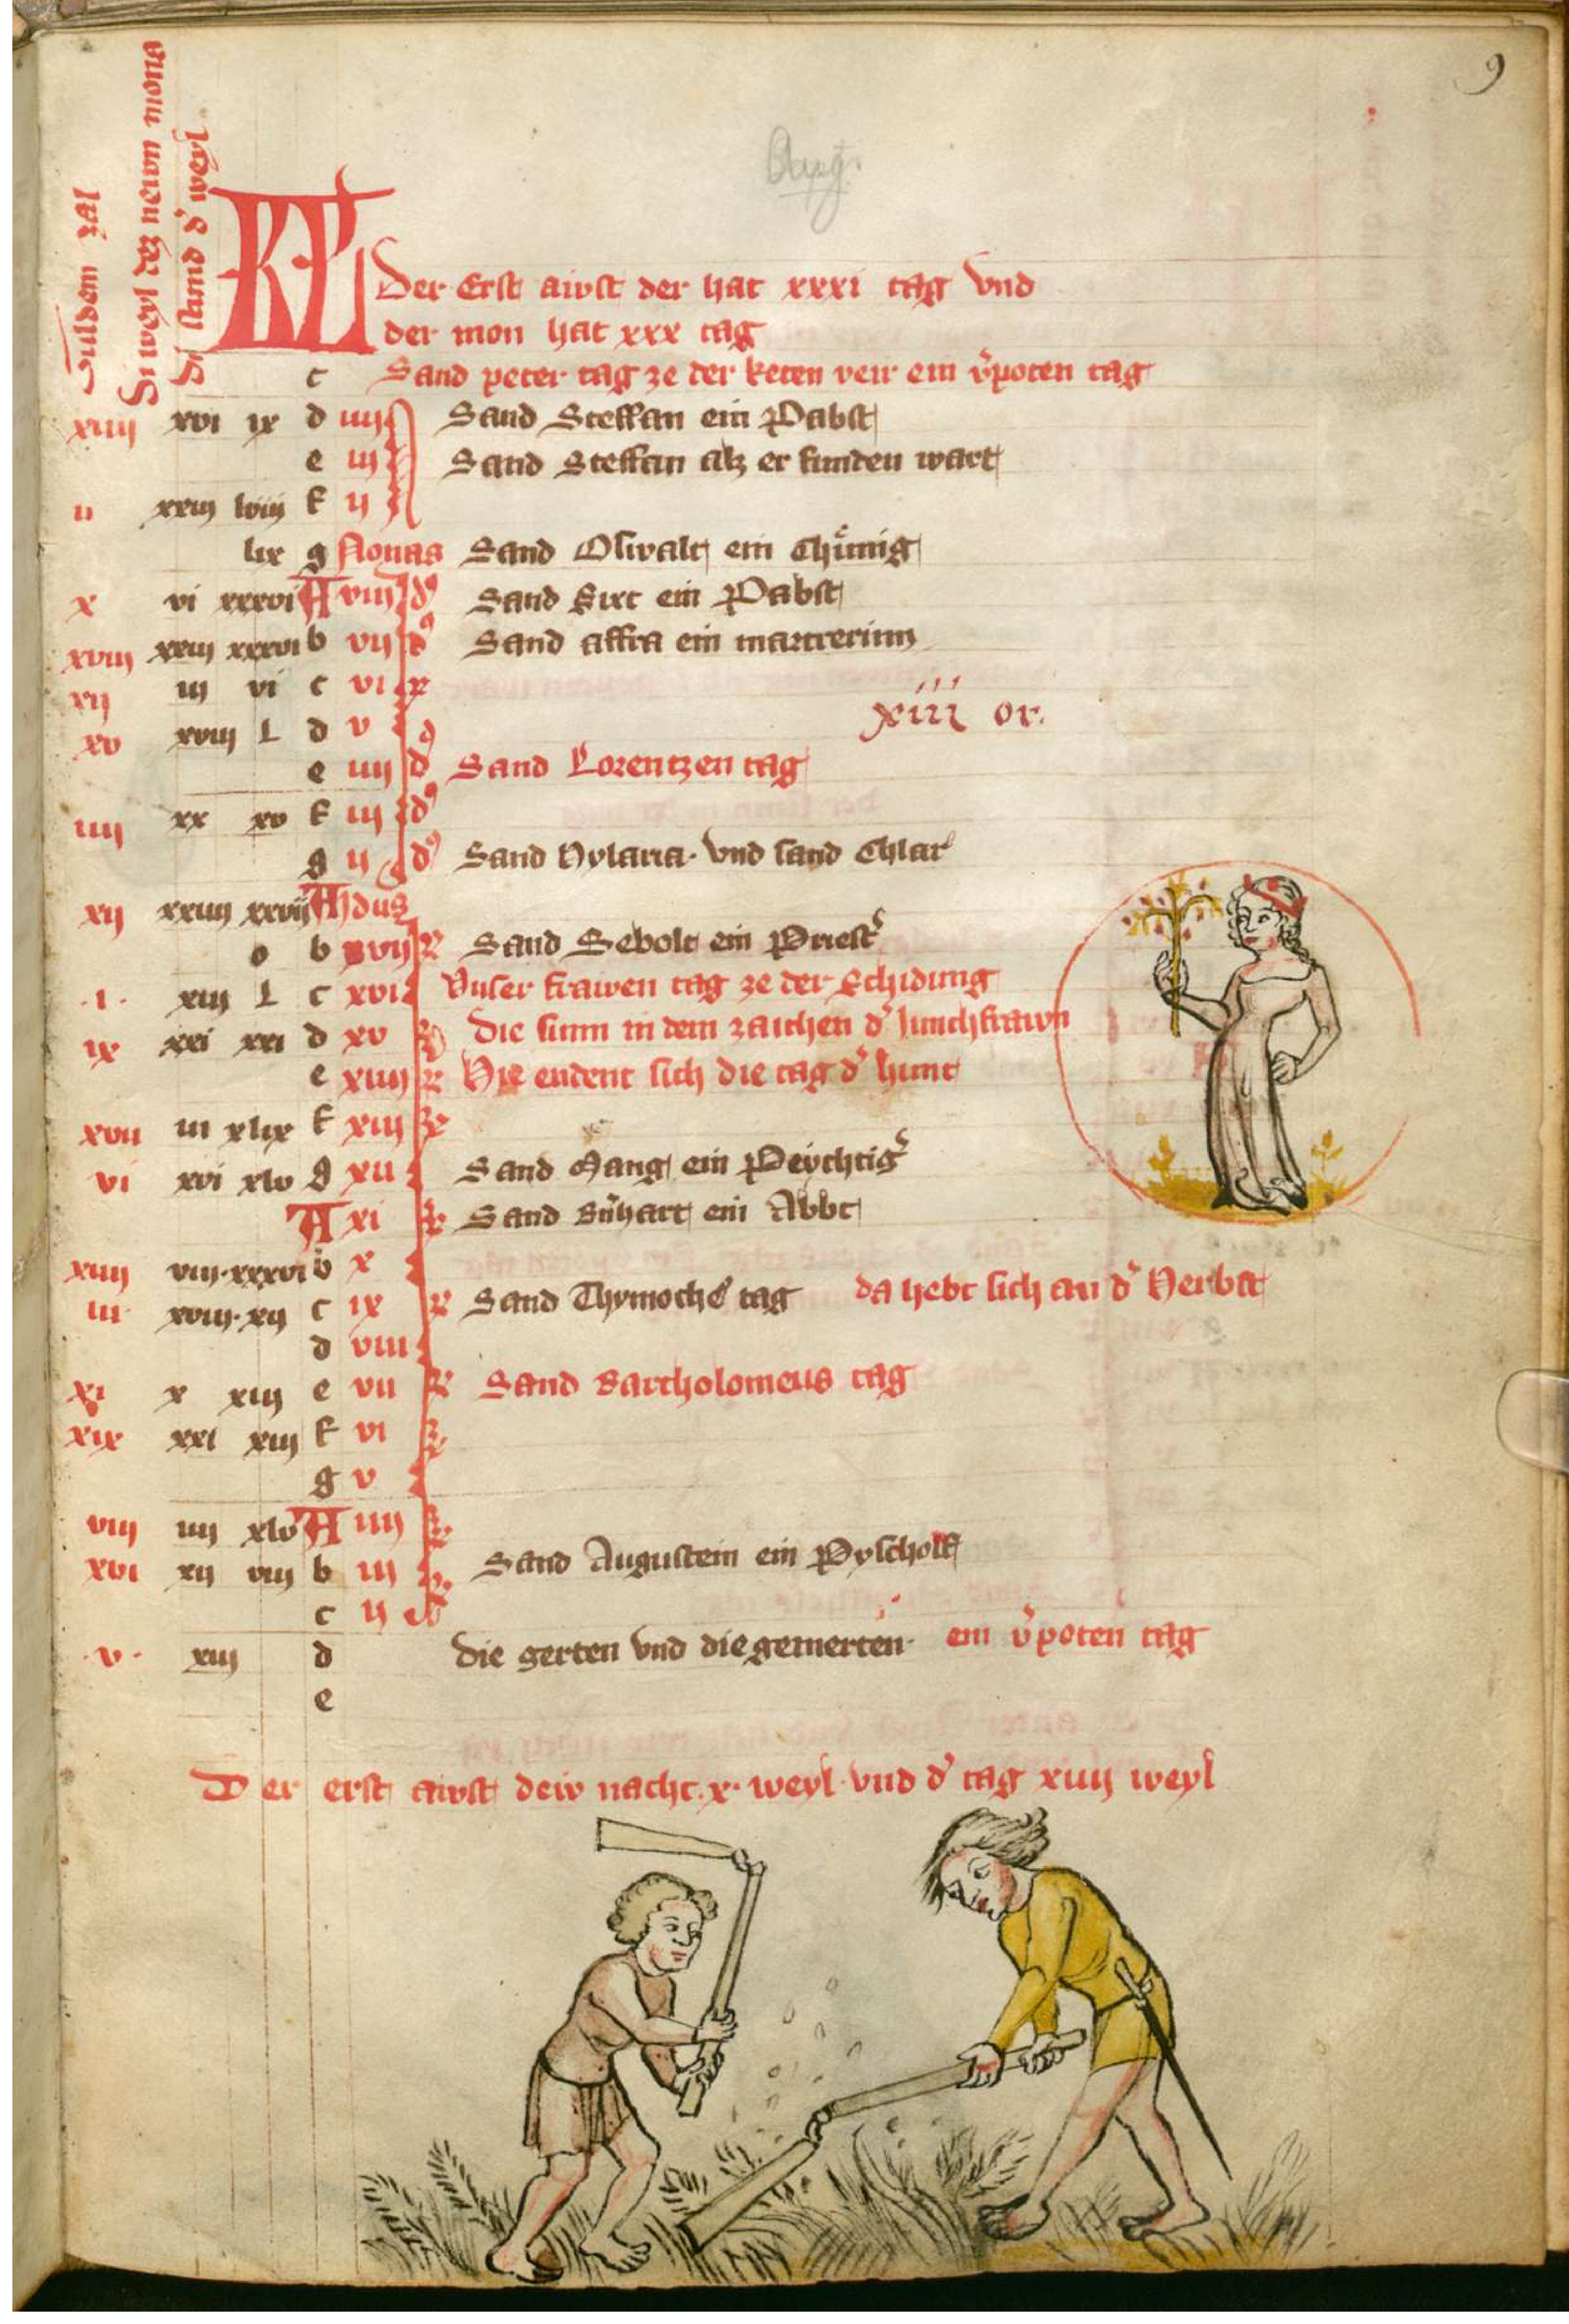 9
Aug.
Guldem zal
Di weyl dez newn mona
Di stand d' weyl
KL Der Erst awst der hat xxxi tag vnd
der mon hat xxx tag
c Sand peter tag ze der keten veir ein v'poten tag
xiiij xvi ix d iiij Sand Steffan ein Pabst
e iij Sand Steffan alz er funden wart
ii xxiij lviij f ij
lix g Nonas Sand Oswalt ein Chünig
x vi xxxvi A viij d' Sand Sixt ein Pabst
xviij xxiij xxxvi b vij d' Sand affra ein martrerinn
xij iij vi c vi
xiii or.
xv xviij L d v
e iiij d' Sand Lorentzen tag
iiij xx xv f iij d'
g ij d' Sand Hylaria vnd sand Chlar
xij xxiiij xxvij A Idus
o b xvij k Sand Sebolt ein Priest'
i xiij L c xvi Vnser frawen tag ze der Schidung
ix xxi xxi d xv Die sunn in dem zaichen d' Junchfrawn
e xiiij k Hie endent sich die tag d' hunt
xvii iii xlix f xiij
vi xvi xlv g xii Sand Mang ein Peychtig'
A xi Sand B'nhart ein Abbt
xiiij viij xxxvi b x
iii xviij xij c ix Sand Thymothe' tag da hebt sich an d' Herbst
d viii
xi x xiij e vii Sand Bartholomeus tag
xix xxi xiij f vi
g v
viij iiij xlv A iiij
xvi xij viij b iij Sand Augustein ein Pyscholf
c ij
v xiij d die gerten vnd die gemerten ein v'poten tag
e
Der erst awst dew nacht x weyl vnd d' tag xiiij weyl